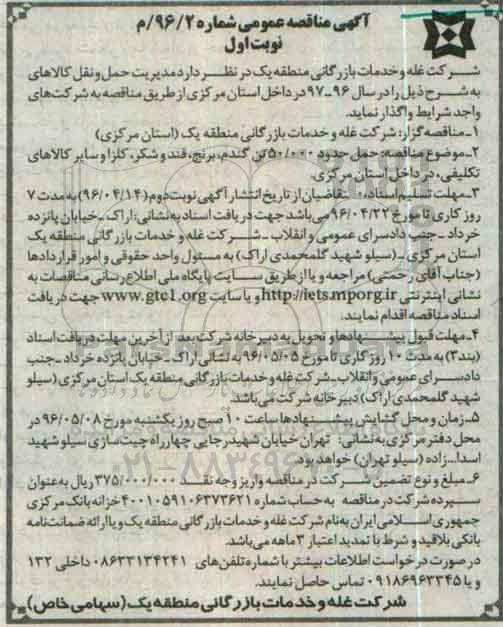 آگهی مناقصه عمومی شماره ۹۶/۲/م
نوبت اول
شرکت غله و خدمات بازرگانی منطقه یک در نظر دارد مدیریت حمل و نقل کالاهای
به شرح ذیل را در سال ۹۶-۹۷ در داخل استان مرکزی از طریق مناقصه به شرکت‌های
واجد شرایط واگذار نماید.
۱- مناقصه گزار: شرکت غله و خدمات بازرگانی منطقه یک (استان مرکزی)
۲- موضوع مناقصه: حمل حدود ۵۰/۰۰۰ تن گندم، برنج، قند و شکر، کلزا و سایر کالاهای
تکلیفی، در داخل استان مرکزی.
۳- مهلت تسلیم اسناد، متقاضیان از تاریخ انتشار آگهی نوبت دوم (۹۶/۰۴/۱۴) به مدت ۷
روز کاری تا مورخ ۹۶/۰۴/۲۲ می‌باشد جهت دریافت اسناد به نشانی: اراک - خیابان پانزده
خرداد - جنب دادسرای عمومی و انقلاب - شرکت غله و خدمات بازرگانی منطقه یک
استان مرکزی - (سیلو شهید گلمحمدی اراک) به مسئول واحد حقوقی و امور قراردادها
(جناب آقای رحمتی) مراجعه و یا از طریق سایت پایگاه ملی اطلاع رسانی مناقصات به
نشانی اینترنتی http://iets.mporg.ir و یا سایت www.gtc1.org جهت دریافت
اسناد مناقصه اقدام نمایند.
۴- مهلت قبول پیشنهادها و تحویل به دبیرخانه شرکت بعد از آخرین مهلت دریافت اسناد
(بند ۳) به مدت ۱۰ روز کاری تا مورخ ۹۶/۰۵/۰۵ به نشانی اراک - خیابان پانزده خرداد - جنب
دادسرای عمومی و انقلاب - شرکت غله و خدمات بازرگانی منطقه یک استان مرکزی (سیلو
شهید گلمحمدی اراک) دبیرخانه شرکت می‌باشد.
۵- زمان و محل گشایش پیشنهادها ساعت ۱۰ صبح روز یکشنبه مورخ ۹۶/۰۵/۰۸ در
محل دفتر مرکزی به نشانی: تهران خیابان شهید رجایی چهارراه چیت سازی سیلو شهید
اسدا... زاده (سیلو تهران) خواهد بود.
۶- مبلغ و نوع تضمین شرکت در مناقصه واریز وجه نقد ۳۷۵/۰۰۰/۰۰۰ ریال به عنوان
سپرده شرکت در مناقصه به حساب شماره ۴۰۰۱۰۵۹۱۰۶۳۷۳۶۲۱ خزانه بانک مرکزی
جمهوری اسلامی ایران به نام شرکت غله و خدمات بازرگانی منطقه یک و یا ارائه ضمانت نامه
بانکی بلاقید و شرط با تمدید اعتبار ۳ ماهه می‌باشد.
در صورت درخواست اطلاعات بیشتر با شماره تلفن‌های ۰۸۶۳۳۱۳۴۲۴۱ داخلی ۱۳۲
و یا ۰۹۱۸۶۹۶۳۳۴۵ تماس حاصل نمایند.
شرکت غله و خدمات بازرگانی منطقه یک (سهامی خاص)